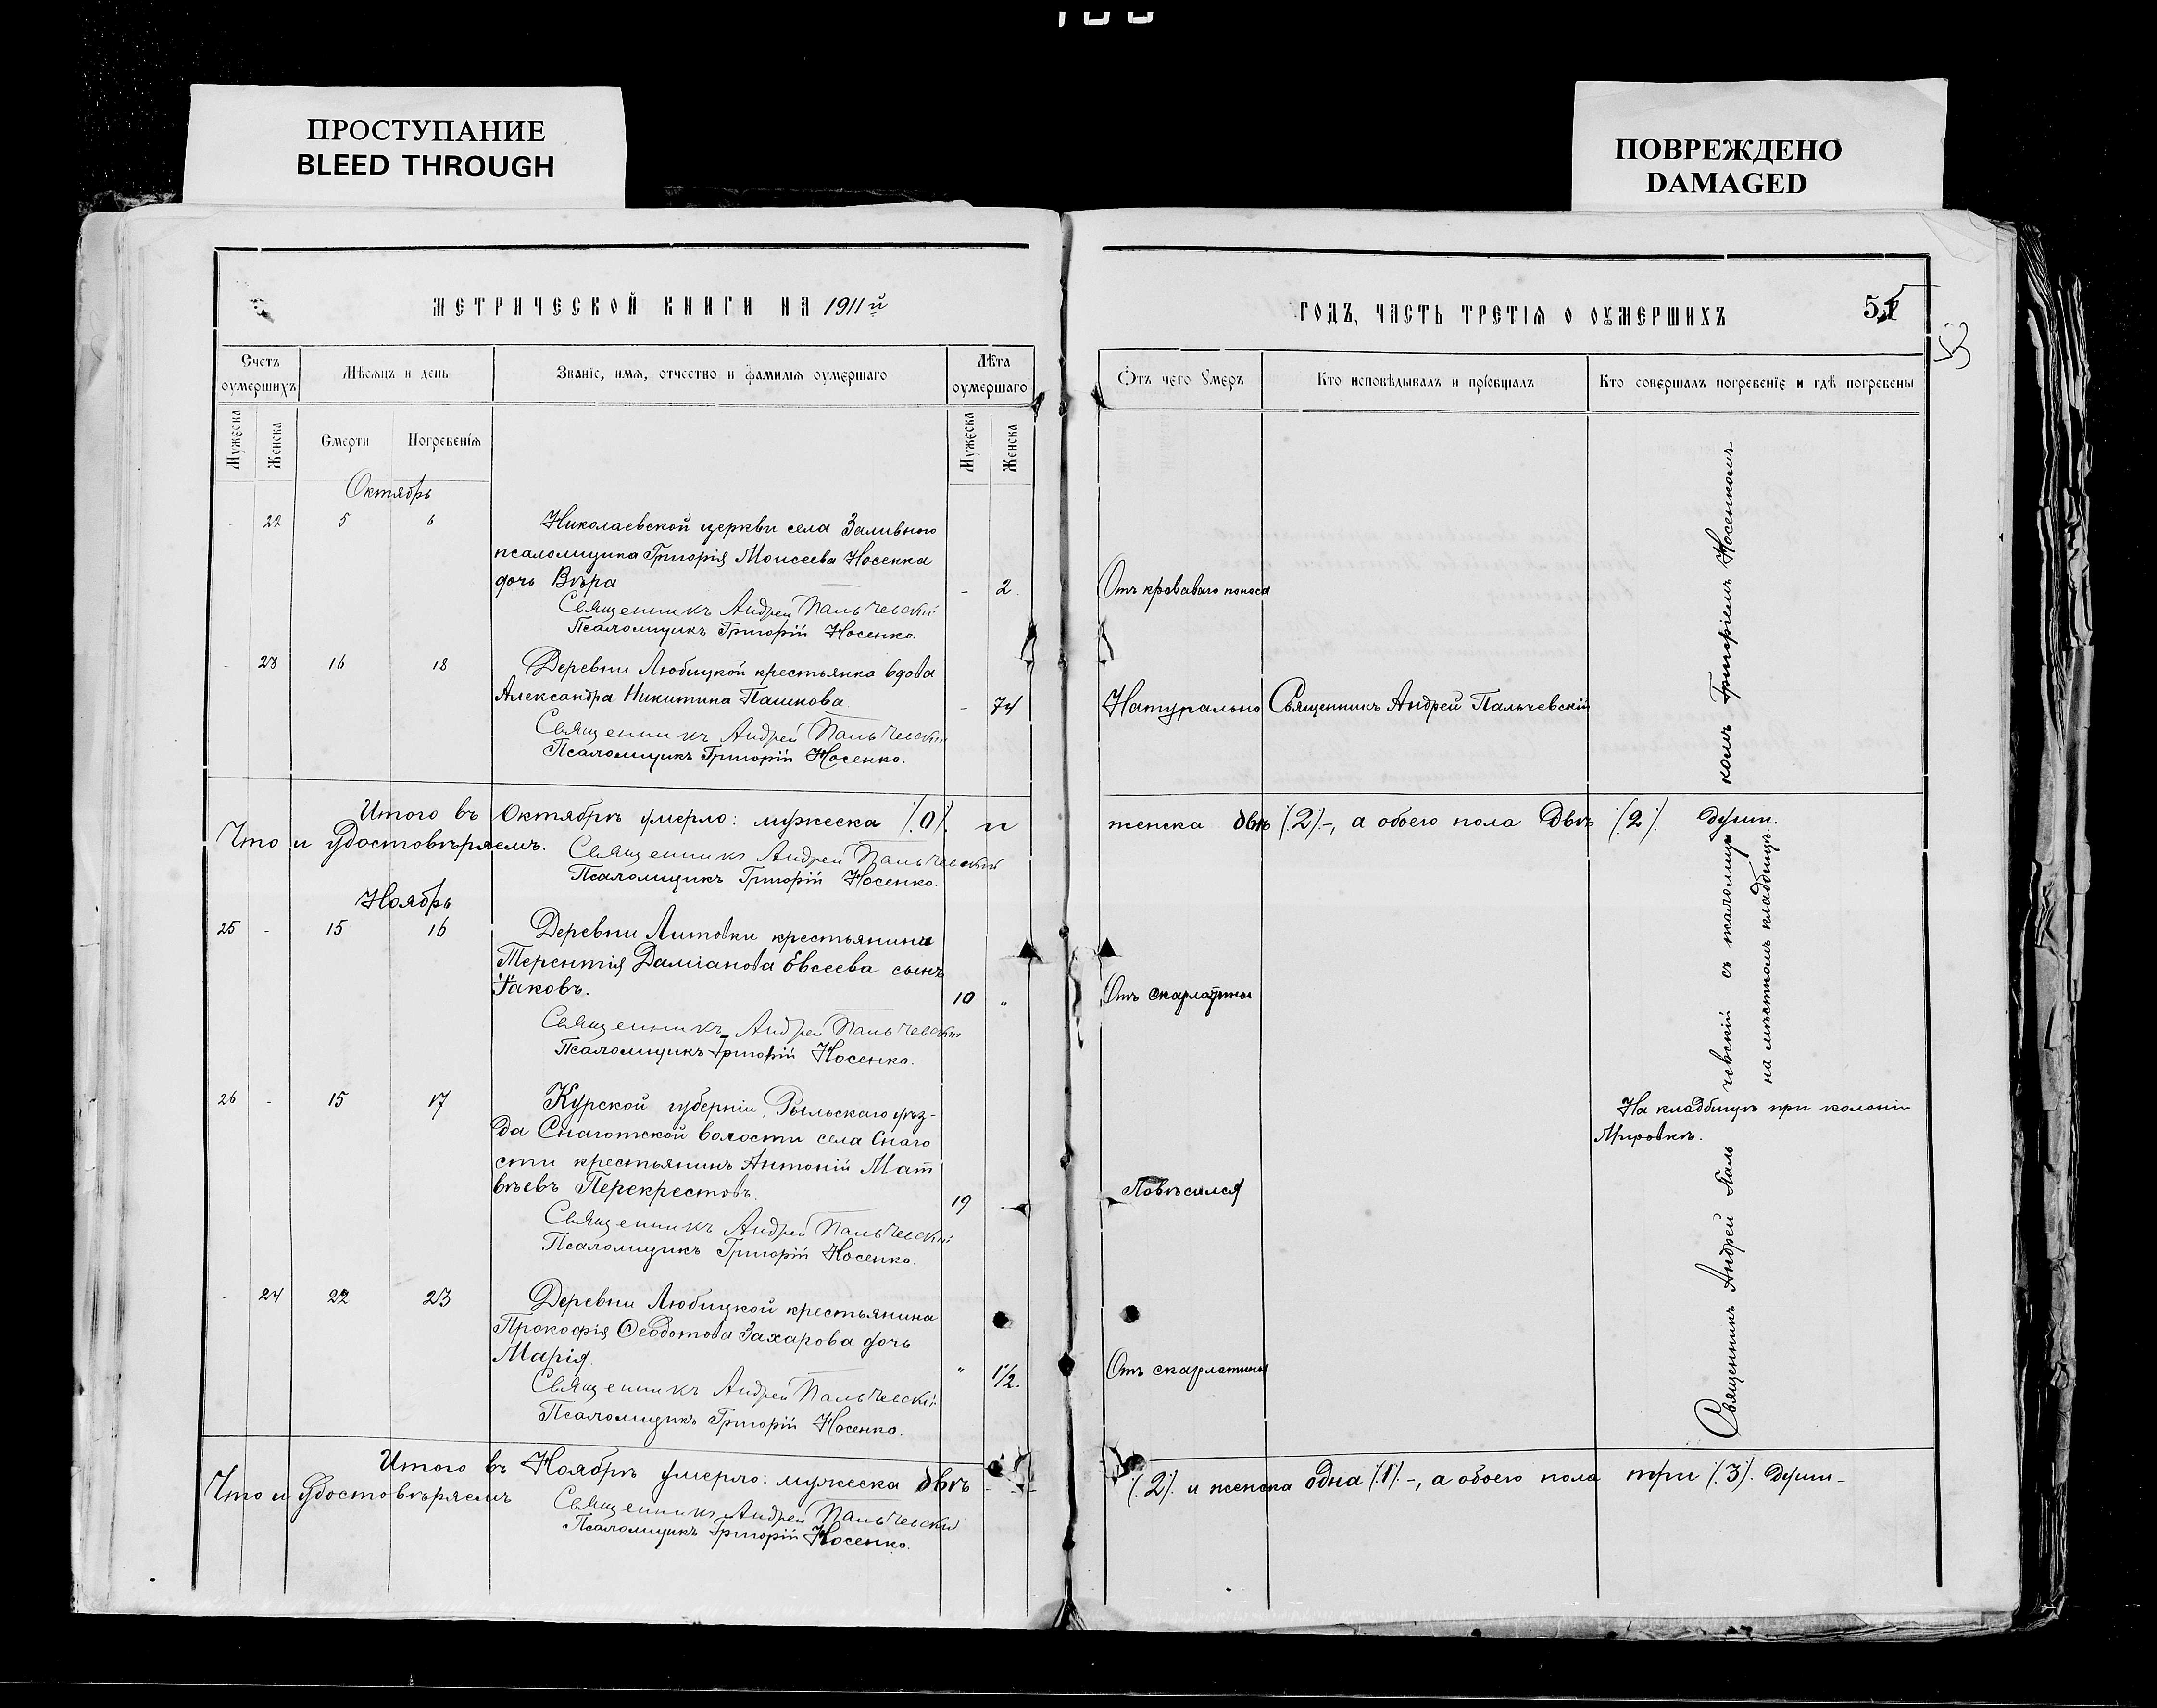 ПРОСТУПАНИЕ
BLEED THROUGH
ПОВРЕЖДЕНО
DAMAGED
МЕТРИЧЕСКОЙ КНИГИ НА 1911й
Счетъ оумершихъ
Мѣсяцъ и день
Званіе, имя, отчество и фамилія оумершаго
Лѣта оумершаго
Мужеска
Женска
Смерти
Погребенія
Мужеска
Женска
Октябрь
22 5 6 Николаевской церкви села Заливного
псаломщика Григорія Моисеева Носенка
дочь Вѣра - 2
Священникъ Андрей Пальчевскій
Псаломщикъ Григорій Носенко.
23 16 18 Деревни Любицкой крестьянка вдова
Александра Никитина Пашкова - 74
Священникъ Андрей Пальчевскій
Псаломщикъ Григорій Носенко.
Итого въ Октябрѣ умерло: мужеска /.0/. и
Что и удостовѣряемъ.
Священникъ Андрей Пальчевскій
Псаломщикъ Григорій Носенко.
Ноябрь
25 - 15 16 Деревни Литовки крестьянина
Терентія Даміанова Евсеева сынъ
Іаковъ. 10 "
Священникъ Андрей Пальчевскій
Псаломщикъ Григорій Носенко.
26 - 15 17 Курской губерніи, Рыльскаго уѣз-
да Снаготской волости села Снаго
сти крестьянинъ Антоній Мат
вѣевъ Перекрестовъ. 19 -
Священникъ Андрей Пальчевскій
Псаломщикъ Григорій Носенко.
- 24 22 23 Деревни Любицкой крестьянина
Прокофія Ѳеодотова Захарова дочь
Марія. " 1 1/2.
Священникъ Андрей Пальчевскій
Псаломщикъ Григорій Носенко.
Итого въ Ноябрѣ умерло: мужеска двѣ
Что и удостовѣряемъ
Священникъ Андрей Пальчевскій
Псаломщикъ Григорій Носенко.
ГОДЪ, ЧАСТЬ ТРЕТІЯ О ОУМЕРШИХЪ
53
Отъ чего умеръ
Кто исповѣдывалъ и пріобщалъ
Кто совершалъ погребеніе и гдѣ погребены
Отъ кроваваго поноса
Натурально Священникъ Андрей Пальчевскій
женска двѣ /.2/.-, а обоего пола Двѣ /.2/. души.
Отъ скарлатины
На кладбищѣ при колоніи
Мировкѣ.
Повѣсился
Отъ скарлатины
/.2/. и женска одна /.1/.-, а обоего пола три /.3/. души-
Священникъ Андрей Паль чевскій съ псаломщи комъ Григоріемъ Носенкомъ
на мѣстномъ кладбищѣ.